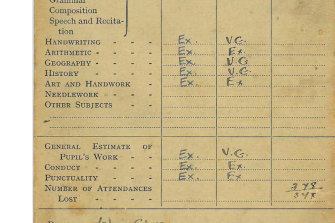 Grammar
Composition
Speech and Recita-
tion
HANDWRITING - - - Ex. V.G.
ARITHMETIC - - - - Ex. Ex
GEOGRAPHY - - - - Ex. V G
HISTORY - - - - Ex. V.G.
ART AND HANDWORK - - Ex Ex
NEEDLEWORK - - - -
OTHER SUBJECTS - -
GENERAL ESTIMATE OF
PUPIL'S WORK - - Ex. V.G.
CONDUCT - - - - Ex. Ex.
PUNCTUALITY - - - Ex. Ex
NUMBER OF ATTENDANCES
LOST - - - -